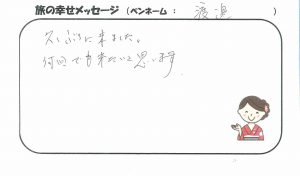 旅の幸せメッセージ (ペンネーム : 渡邉 )
久しぶりに来ました。
何回でも来たいと思います